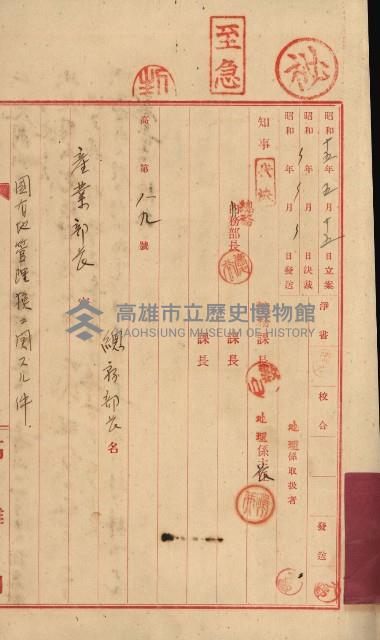 至急
昭和十五年五月十五日立案 淨書 校合 發送
昭和 年 月 日決裁 地理係取扱者
昭和 年 月 日發送
知事 代決 總務部長 課長 地理係長
課長
課長
高 第一八九號
產業部長 宛 總務部長 名
國有地管理換ニ関スル件
高雄市立歷史博物館
KAOHSIUNG MUSEUM OF HISTORY